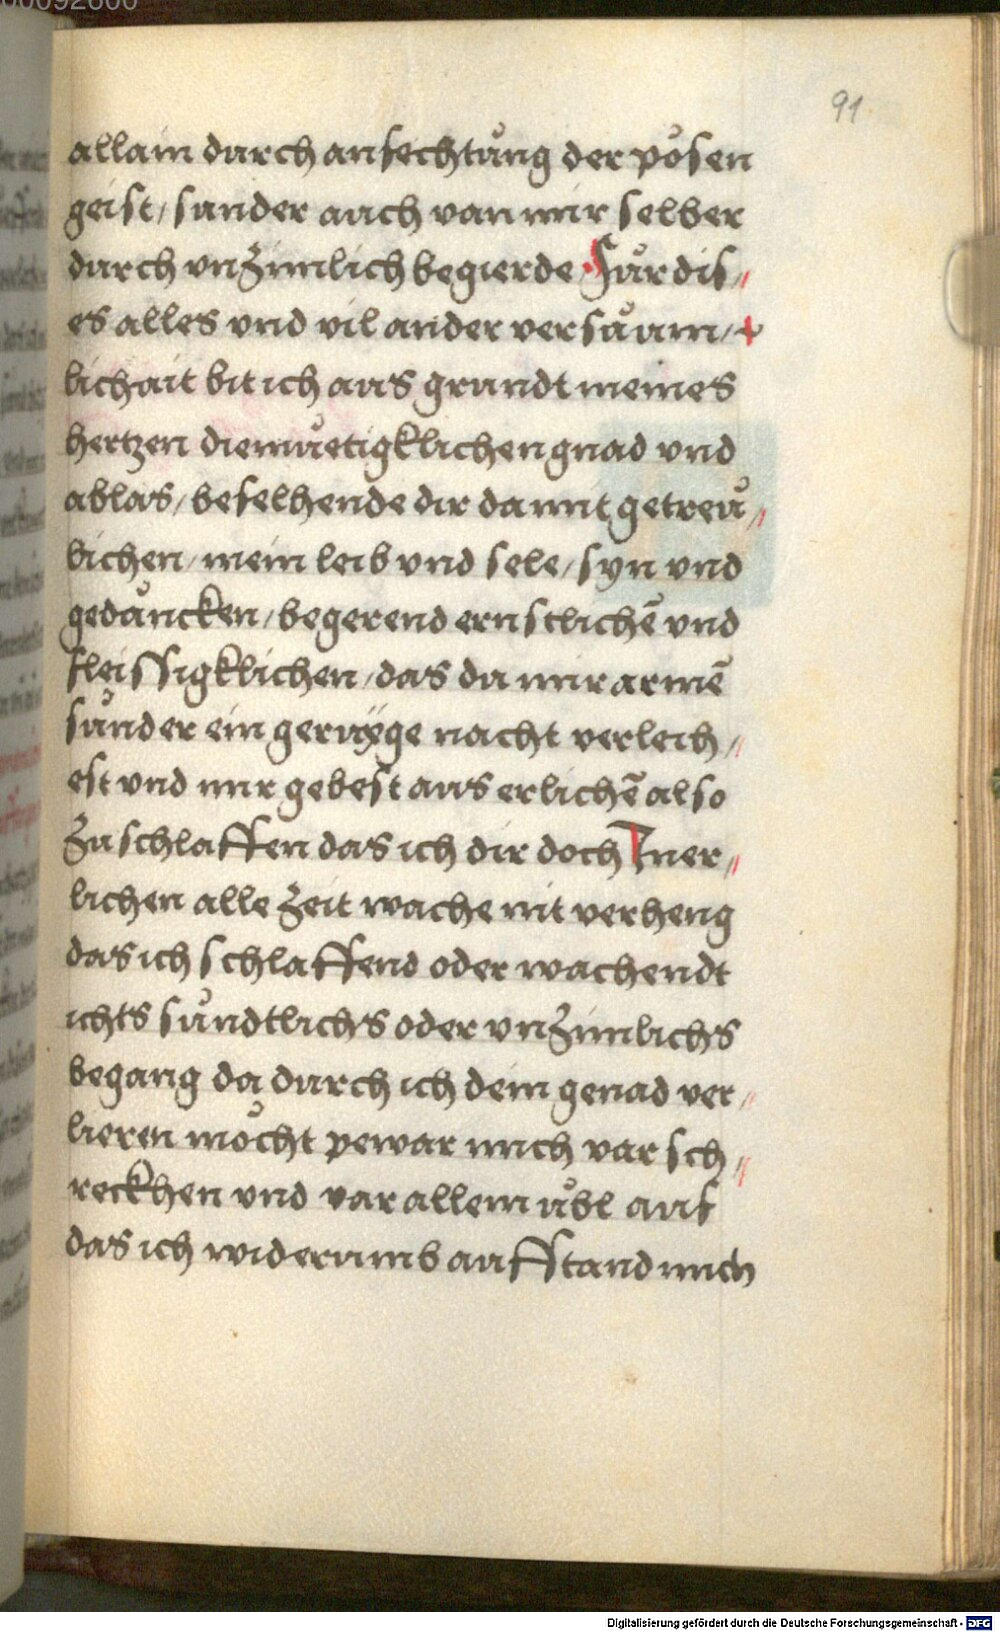 00092600
91
allain durch anfechtůng der pösen
geist / sunder auch van mir selber
durch vnzimlich begierde Fůr dis //
es alles vnd vil ander versaum / 
lichait bit ich aus grundt meines
hertzen diemüetigklichen gnad vnd
ablas / befelhende dir damit getreů //
lichen / mein leib vnd sele / syn vnd
gedäncken / begerend ernstlichē vnd
fleissigklichen / das du mir armē
sůnder ein geruÿge nacht verleich //
est vnd mir gebest aus erlichē also
zu schlaffen das ich dir doch Iner //
lichen alle zeit wache nit verheng
das ich schlaffend oder wachendt
ichts sůndtlichs oder vnzimlichs
begang da durch ich dein genad ver //
lieren möcht pewar mich var sch //
reckhen vnd var allem ůbl auf
das ich widerumb auffstand mich
Digitalisierung gefördert durch die Deutsche Forschungsgemeinschaft - DFG